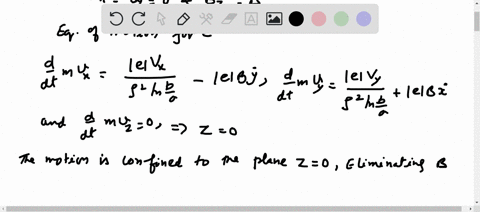 Eq. of
d/dt m v_x = |e|V_x / ρ² ln b/a − |e|Bẏ, d/dt m v_y = |e|V_y / ρ² ln b/a + |e|Bẋ
and d/dt m v_z = 0, => Z = 0
The motion is confined to the plane Z = 0, Eliminating B